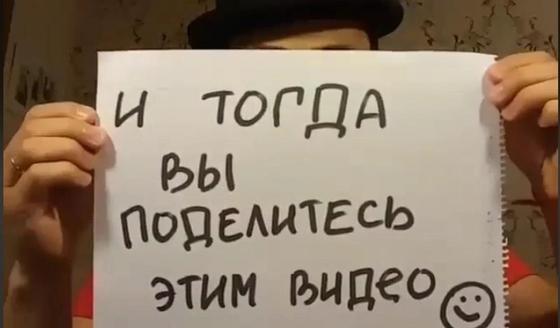 И ТОГДА
ВЫ
ПОДЕЛИТЕСЬ
ЭТИМ ВИДЕО